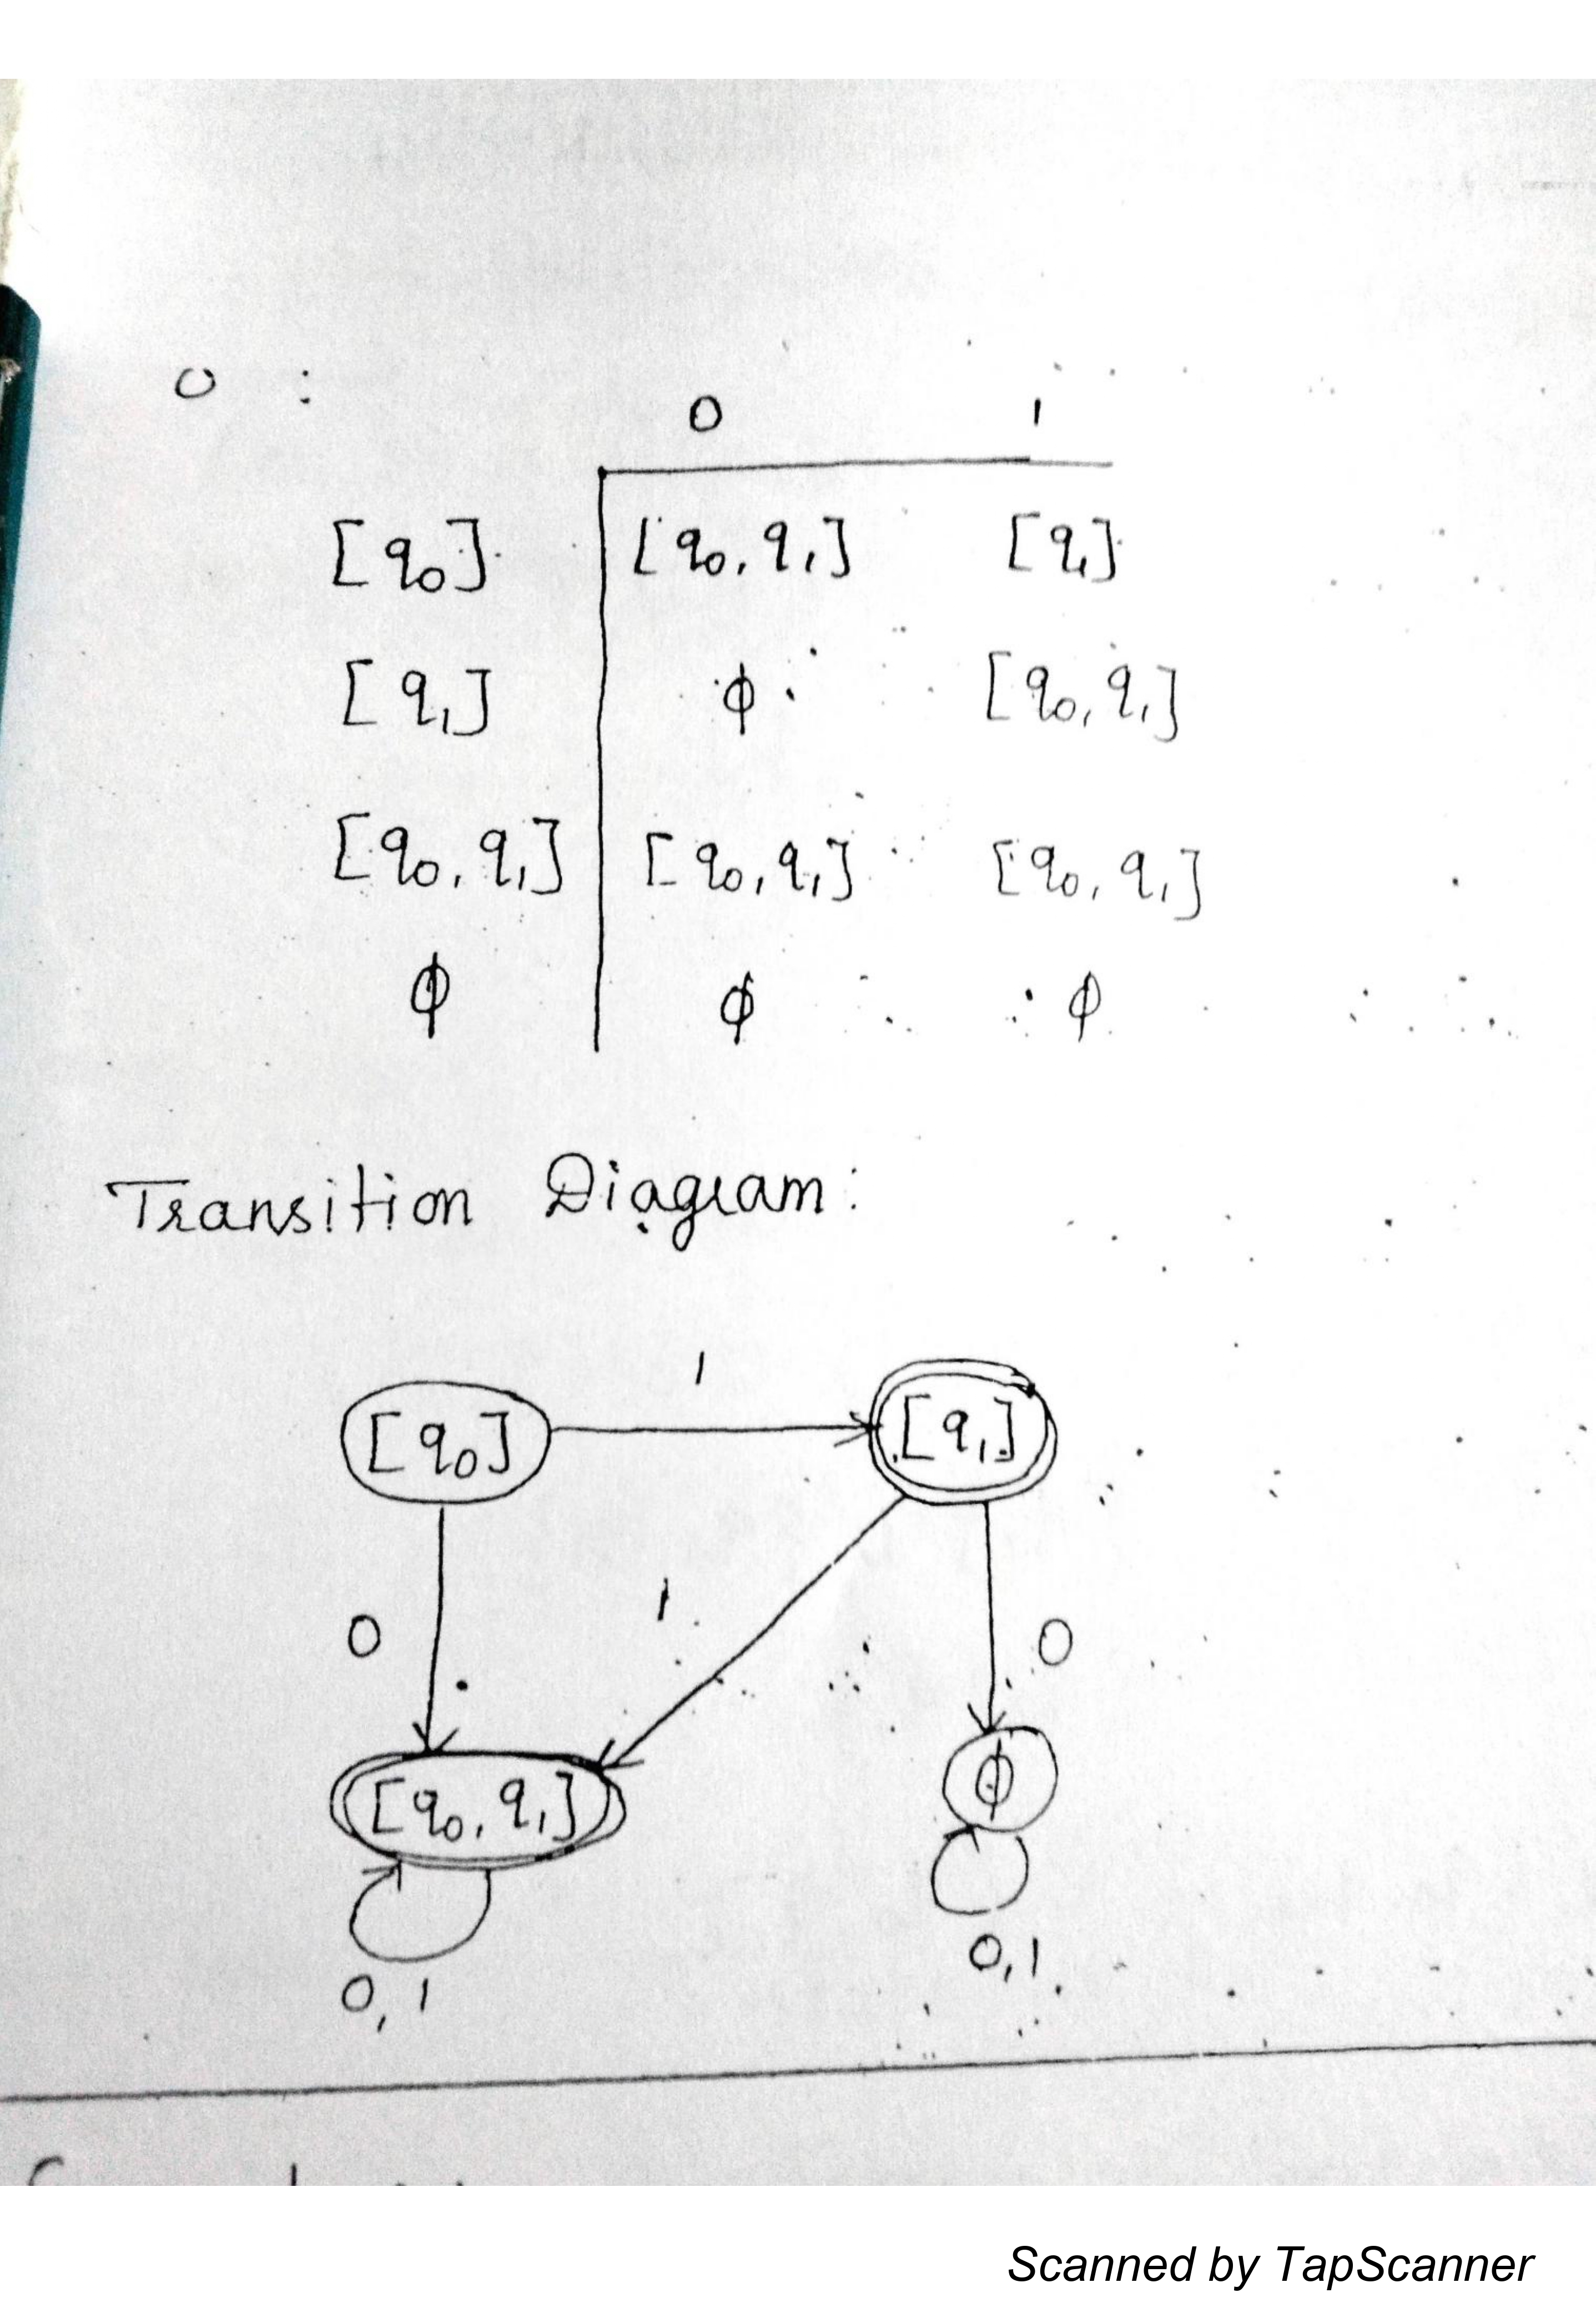 0 :
0 1
[q₀] [q₀, q₁] [q₁]
[q₁] ϕ [q₀, q₁]
[q₀, q₁] [q₀, q₁] [q₀, q₁]
ϕ ϕ ϕ
Transition Diagram:
1
[q₀] [q₁]
0 1 0
[q₀, q₁] ϕ
0, 1 0, 1
Scanned by TapScanner